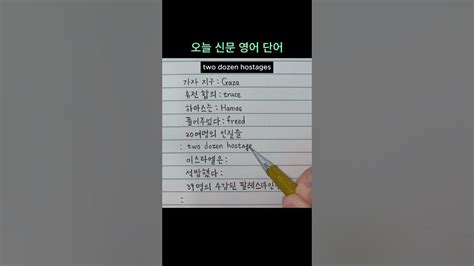 오늘 신문 영어 단어
two dozen hostages
가자 지구 : Gaza
휴전 합의 : truce
하마스는 : Hamas
풀어주었다 : freed
20여명의 인질을
: two dozen hostage
이스라엘은 :
석방했다 :
39명의 수감된 팔레스타인
: